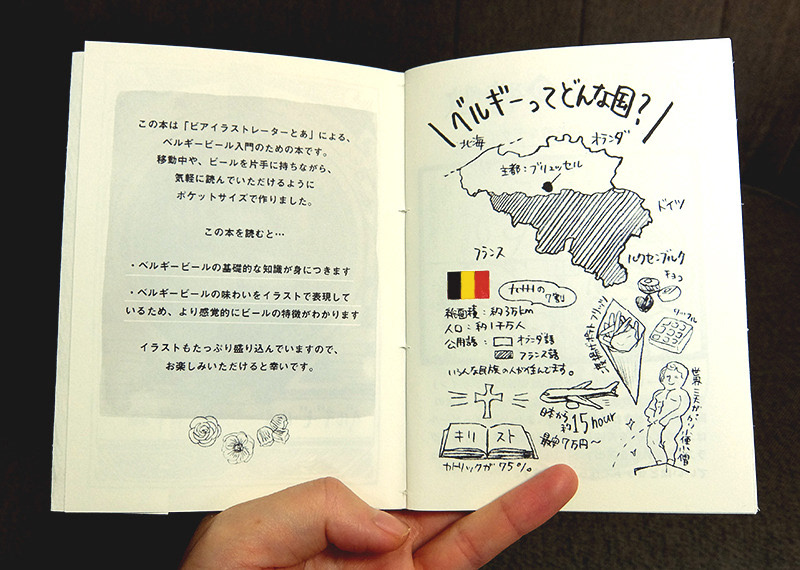 この本は「ビアイラストレーターとあ」による、
ベルギービール入門のための本です。
移動中や、ビールを片手に持ちながら、
気軽に読んでいただけるように
ポケットサイズで作りました。
この本を読むと…
・ベルギービールの基礎的な知識が身につきます
・ベルギービールの味わいをイラストで表現して
いるため、より感覚的にビールの特徴がわかります
イラストもたっぷり盛り込んでいますので、
お楽しみいただけると幸いです。
ベルギーってどんな国?
北海
オランダ
主都:ブリュッセル
ドイツ
フランス
ルクセンブルク
チョコ
九州の
7割
総面積:約3万km
人口:約1千万人
公用語:
オランダ語
フランス語
いろんな民族の人が住んでます。
ワッフル
フリッツ
世界三大がっかり小便小僧
日本から
約15hour
最安7万円〜
キリスト
カトリックが75%。